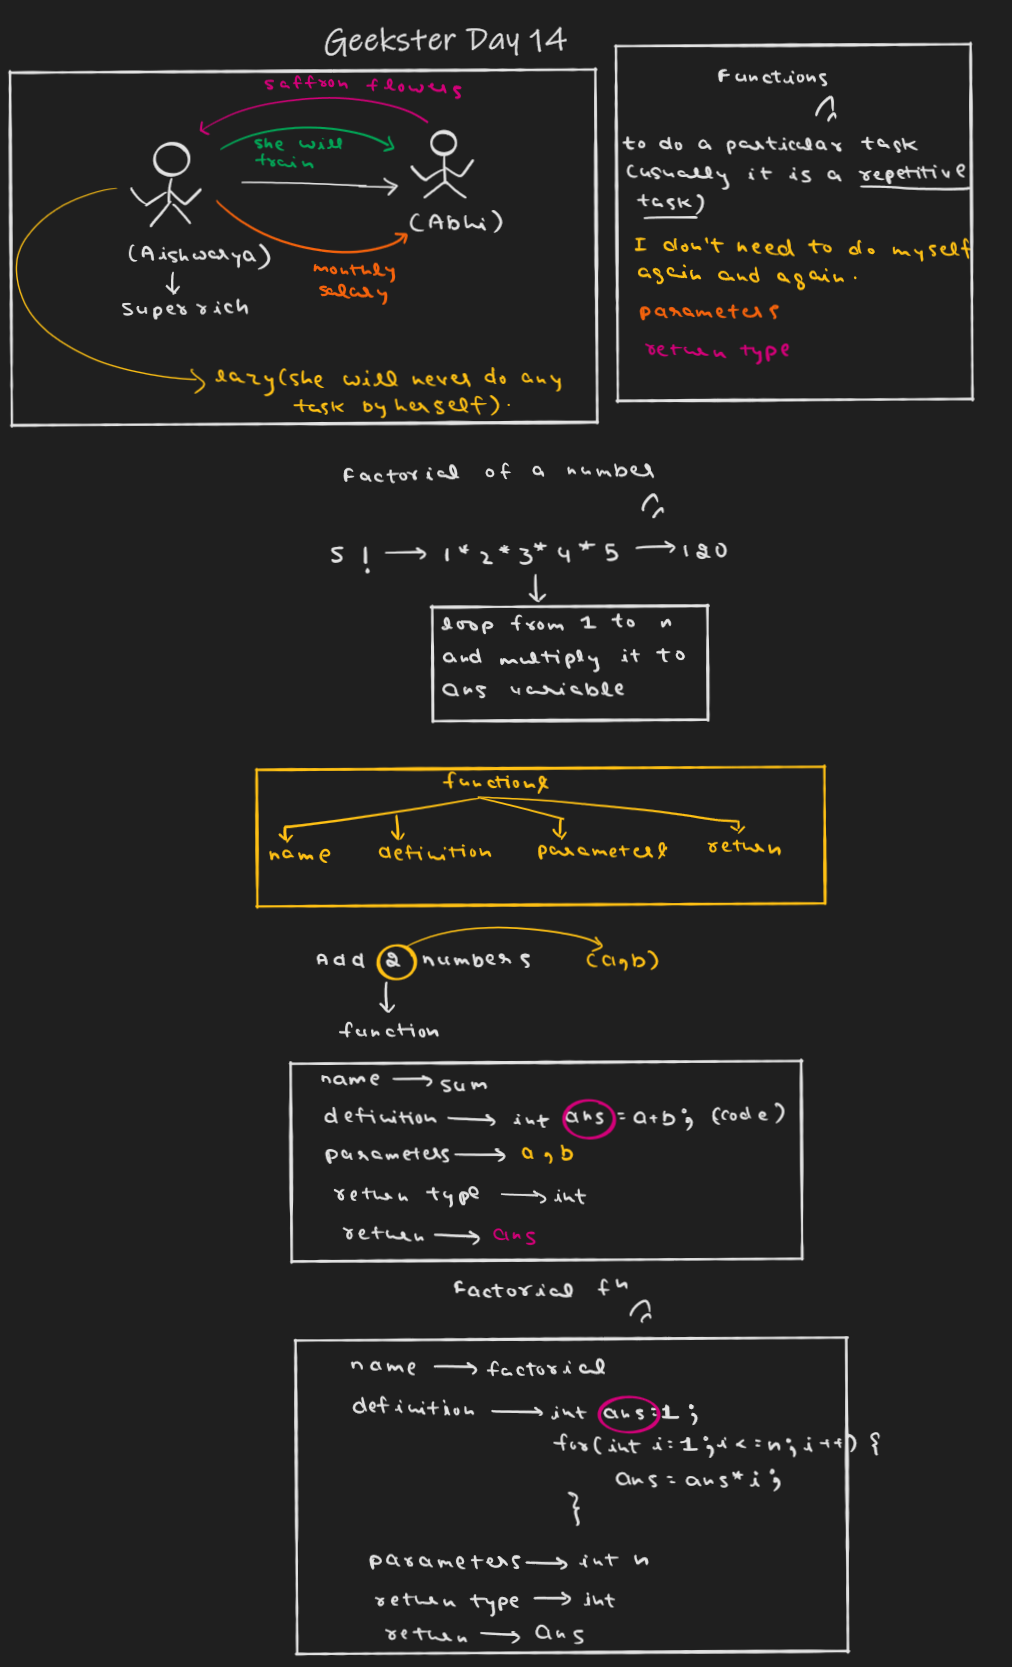 Geekster Day 14
saffron flowers
she will
train
(Abhi)
(Aishwarya)
super rich
monthly
salary
lazy (she will never do any
task by herself).
Functions
to do a particular task
(usually it is a repetitive
task)
I don't need to do myself
again and again.
parameters
return type
Factorial of a number
5 ! → 1 * 2 * 3 * 4 * 5 → 120
loop from 1 to n
and multiply it to
ans variable
functions
name definition parameters return
Add 2 numbers (a,b)
function
name → sum
definition → int ans = a+b; (code)
parameters → a, b
return type → int
return → ans
Factorial fn
name → factorial
definition → int ans=1;
for(int i=1; i<=n; i++) {
ans = ans * i;
}
parameters → int n
return type → int
return → ans